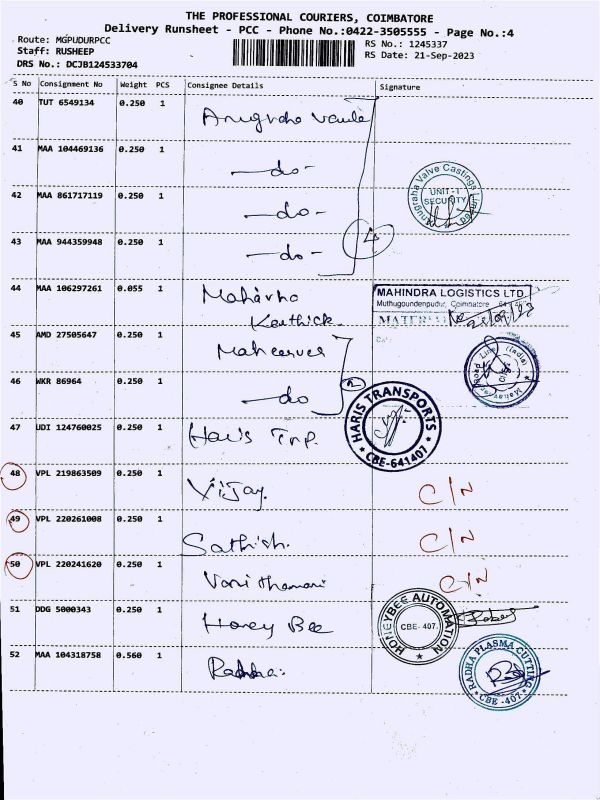 THE PROFESSIONAL COURIERS, COIMBATORE
Delivery Runsheet - PCC - Phone No.:0422-3505555 - Page No.:4
Route: MGPUDURPCC
RS No.: 1245337
Staff: RUSHEEP
RS Date: 21-Sep-2023
DRS No.: DCJB124533704
S No Consignment No Weight PCS Consignee Details Signature
40 TUT 6549134 0.250 1
Anugraha Valve
41 MAA 104469136 0.250 1
-do-
42 MAA 861717119 0.250 1
-do-
Anugraha Valve Castings Limited
UNIT-I
SECURITY
43 MAA 944359948 0.250 1
-do-
4
44 MAA 106297261 0.055 1
Mahindra
Karthick
MAHINDRA LOGISTICS LTD.
Muthugoundenpudur, Coimbatore
MATERIAL
45 AMD 27505647 0.250 1
46 WKR 86964 0.250 1
-do
2
47 UDI 124760025 0.250 1
Haris Trp.
HARIS TRANSPORTS
CBE-641407
48 VPL 219863509 0.250 1
Vijay.
C/N
49 VPL 220261008 0.250 1
Sathish.
C/N
50 VPL 220241620 0.250 1
C/N
51 DDG 5000343 0.250 1
Honey Bee
HONEYBEE AUTOMATION
CBE- 407.
52 MAA 104318758 0.560 1
Radha.
RADHA PLASMA CUTTING
CBE -407